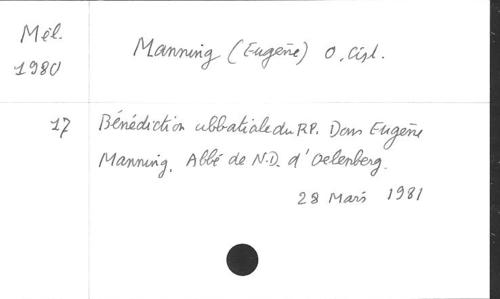 Mél.
1980
Manning (Eugène) O. Cist.
17
Bénédiction abbatiale du RP. Dom Eugène
Manning. Abbé de N.D. d'Oelenberg.
28 Mars 1981